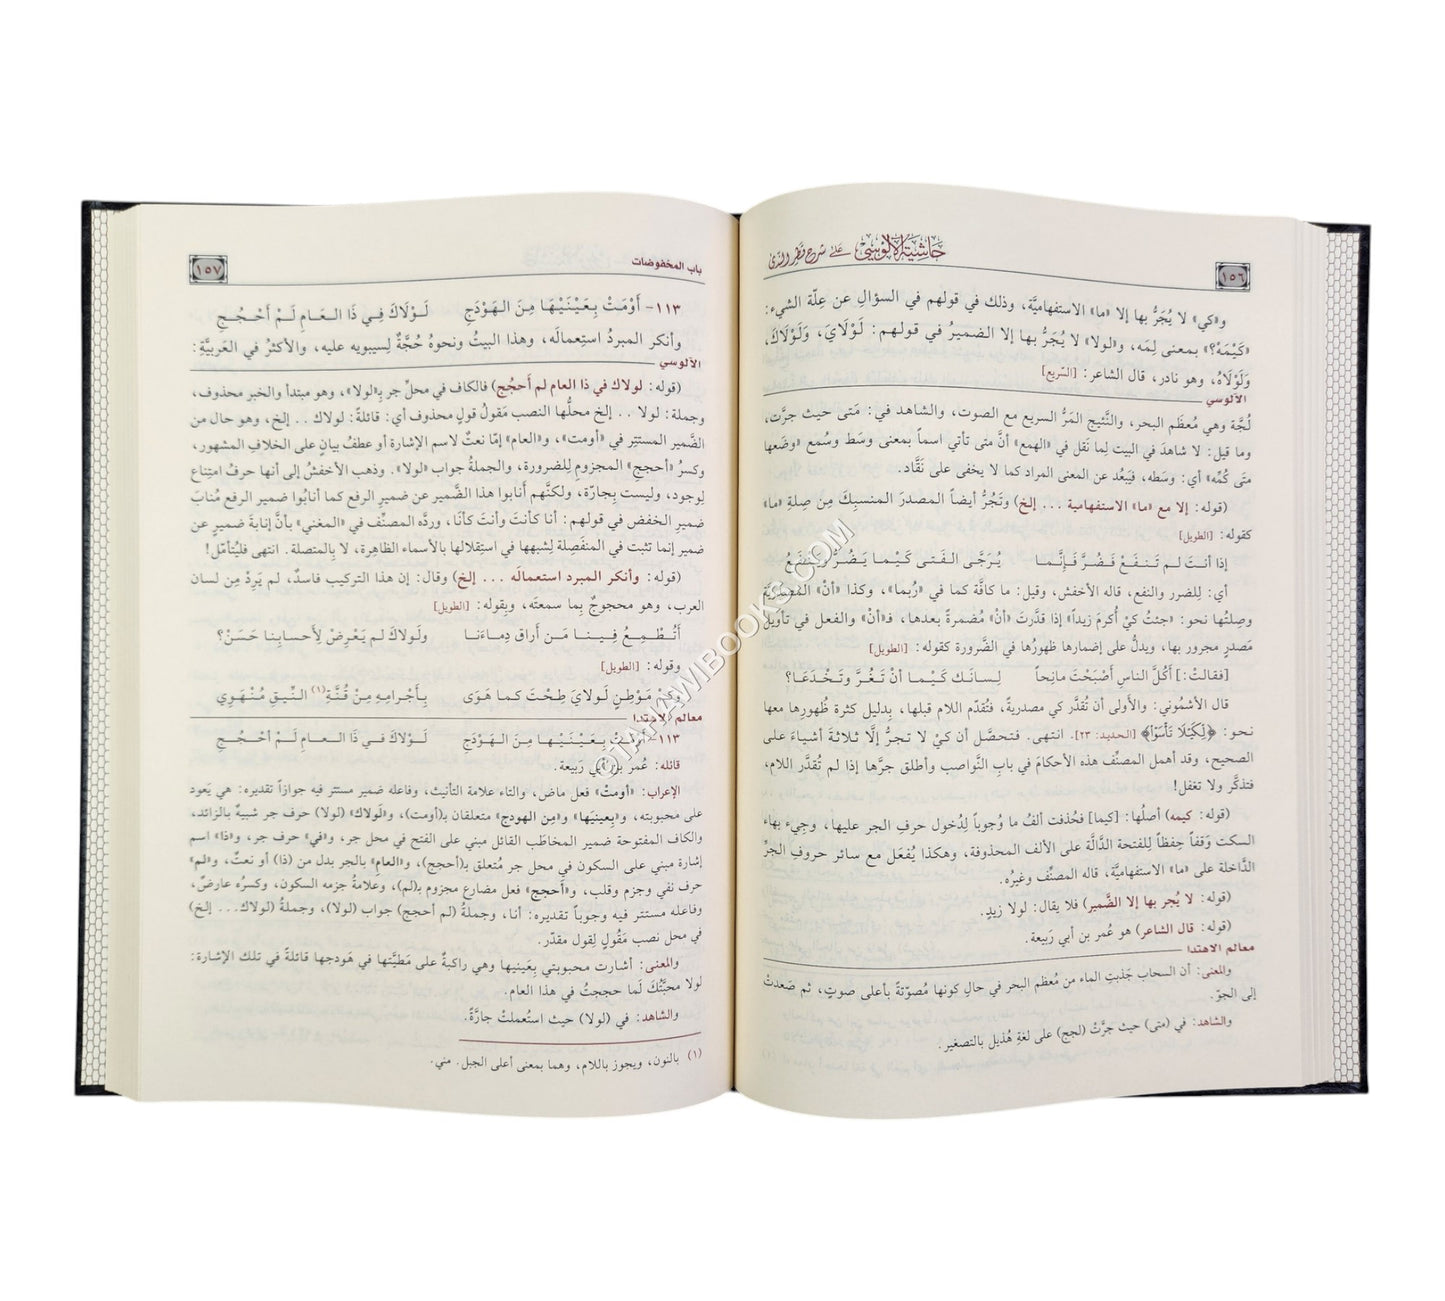 حاشية الآلوسي على شرح قطر الندى
١٥٦
و«كي» لا يُجَرُّ بها إلا «ما» الاستفهاميَّة، وذلك في قولهم في السؤالِ عن عِلّة الشيء:
«كَيْمَهْ؟» بمعنى لِمَه، و«لولا» لا يُجَرُّ بها إلا الضميرُ في قولهم: لَوْلَايَ، وَلَوْلَاكَ،
وَلَوْلَاهُ، وهو نادر، قال الشاعر: [السّريع]
الآلوسي
لُجَّة وهي مُعظَم البحر، والنَّئيج المَرُّ السريع مع الصوت، والشاهد في: مَتى حيث جرَّت،
وما قيل: لا شاهدَ في البيت لِما نَقل في «الهمع» أنَّ متى تأتي اسماً بمعنى وسَط وسُمع «وضَعها
متى كُمِّه» أي: وسَطه، فيَبعُد عن المعنى المراد كما لا يخفى على نَقَّاد.
(قوله: إلا مع «ما» الاستفهامية ... إلخ) وتَجُرُّ أيضاً المصدرَ المنسبِكَ مِن صلةِ «ما»
كقوله: [الطويل]
إذا أنتَ لم تَنفَعْ فَضُرَّ فَإنَّما يُرَجَّى الفَتى كَيْما يَضُرُّ وَيَنفَعُ
أي: لِلضرر والنفع، قاله الأخفش، وقيل: ما كافَّة كما في «رُبما»، وكذا «أنْ» المصدريَّة
وصِلتُها نحو: «جئتُ كيْ أُكرمَ زيداً» إذا قدَّرتَ «أنْ» مُضمرةً بعدها، فـ«أنْ» والفعل في تأويل
مَصدرٍ مجرور بها، ويدلُّ على إضمارها ظهورُها في الضَّرورة كقوله: [الطويل]
[فقالتْ:] أكُلَّ الناسِ أصْبَحْتَ مانِحاً لِسانَك كَيْما أنْ تَغُرَّ وتَخْدَعَا؟
قال الأشمُوني: والأَولى أن تُقدَّر كي مصدريةً، فتُقدّم اللام قبلها، بدليل كثرة ظُهورِها معها
نحو: ﴿لِّكَيْلَا تَأْسَوْا﴾ [الحديد: ٢٣]. انتهى. فتحصَّل أن كيْ لا تجرُّ إلَّا ثلاثةَ أشياءَ على
الصحيح، وقد أهمل المصنِّف هذه الأحكامَ في بابِ النَّواصب وأطلق جرَّها إذا لم تُقدَّر اللام،
فتذكَّر ولا تغفل!
(قوله: كيمه) أصلُها: [كيما] فحُذفت ألفُ ما وُجوباً لِدُخول حرفِ الجر عليها، وجِيء بهاء
السكت وَقفاً حِفظاً لِلفتحة الدَّالَّة على الألف المحذوفة، وهكذا يُفعَل مع سائر حروفِ الجرِّ
الدَّاخلة على «ما» الاستفهاميَّة، قاله المصنِّف وغيرُه.
(قوله: لا يُجر بها إلا الضَّمير) فلا يقال: لولا زيدٍ.
(قوله: قال الشاعر) هو عُمر بن أبي رَبيعة.
معالم الاهتدا
والمعنى: أن السحاب جَذبتِ الماء من مُعظم البحر في حالِ كونها مُصوّتةً بأعلى صوتٍ، ثم صَعدتْ
إلى الجوّ.
والشاهد: في (متى) حيث جرَّتْ (لجج) على لغةِ هُذيل بالتصغير.
باب المخفوضات
١٥٧
١١٣- أَوْمَتْ بِعَيْنَيْها مِنَ الهَوْدَجِ لَوْلاكَ فِي ذَا العَامِ لَمْ أَحْجُجِ
وأنكر المبردُ استِعمالَه، وهذا البيتُ ونحوهُ حُجَّةٌ لِسيبويه عليه، والأكثرُ في العَربيَّةِ:
الآلوسي
(قوله: لولاك في ذا العام لم أحجُج) فالكاف في محلِّ جر بـ«لولا»، وهو مبتدأ والخبر محذوف،
وجملة: لولا .. إلخ محلُّها النصب مَقولُ قولٍ محذوف أي: قائلةً: لولاك .. إلخ، وهو حال من
الضَّمير المستتِر في «أومت»، و«العام» إمّا نعتٌ لاسم الإشارة أو عطفُ بيانٍ على الخلافِ المشهور،
وكسرُ «أحججِ» المجزومِ لِلضرورة، والجملةُ جواب «لولا». وذهب الأخفشُ إلى أنها حرفُ امتِناع
لِوجود، وليست بِجارّة، ولكنَّهم أَنابوا هذا الضَّمير عن ضَميرِ الرفع كما أنابُوا ضمير الرفع مُنابَ
ضمير الخفض في قولهم: أنا كأنتَ وأنتَ كأنَا، وردَّه المصنِّف في «المغني» بأنَّ إنابةَ ضميرٍ عن
ضمير إنما تثبت في المنفَصِلة لِشبهها في استِقلالها بالأسماء الظاهِرة، لا بِالمتصلة. انتهى فليُتأمّل!
(قوله: وأنكر المبرد استعمالَه ... إلخ) وقال: إن هذا التركيب فاسدٌ، لم يَرِدْ مِن لسان
العرب، وهو محجوجٌ بِما سمعتَه، وبِقوله: [الطويل]
أَتُطْمِعُ فِينا مَن أَراقَ دِماءَنا ولَولاكَ لم يَعْرِضْ لِأَحسابِنا حَسَنْ؟
وقوله: [الطويل]
وكم مَوْطِنٍ لَولايَ طِحْتَ كما هَوَى بِأَجْرامِهِ مِنْ قُنَّةِ(١) النِّيقِ مُنْهَوِي
معالم الاهتدا
١١٣- أومَتْ بِعَيْنَيْها مِنَ الهَوْدَجِ لَوْلاكَ في ذَا العامِ لَمْ أحْجُجِ
قائله: عُمر بن أبي رَبيعة.
الإعراب: «أومتْ» فعل ماض، والتاء علامة التأنيث، وفاعله ضمير مستتر فيه جوازاً تقديره: هي يَعود
على محبوبته، و«بِعينيها» و«مِن الهودج» متعلقان بـ(أومت)، و«لَولاك» (لولا) حرف جر شبيهٌ بالزائد،
والكاف المفتوحة ضمير المخاطَب القائل مبني على الفتح في محل جر، و«في» حرف جر، و«ذا» اسم
إشارة مبني على السكون في محل جر مُتعلق بـ(أحجج)، و«العامِ» بالجر بدل من (ذا) أو نعتٌ، و«لم»
حرف نفي وجزم وقلب، و«أحججِ» فعل مضارع مجزوم بـ(لم)، وعلامةُ جزمه السكون، وكسرُه عارضٌ،
وفاعله مستتر فيه وجوباً تقديره: أنا، وجملةُ (لم أحجج) جواب (لولا)، وجملةُ (لولاك... إلخ)
في محل نصب مَقُولٍ لِقول مقدّر.
والمعنى: أشارت محبوبتي بِعَينيها وهي راكبةٌ على مَطيَّتها في هَودجها قائلةً في تلك الإشارة:
لولا محبَّتُكَ لَما حججتُ في هذا العام.
والشاهد: في (لولا) حيث استُعملتْ جارَّةً.
(١) بالنون، ويجوز باللام، وهما بمعنى أعلى الجبل. مني.
©TANJAWIBOOKS.COM